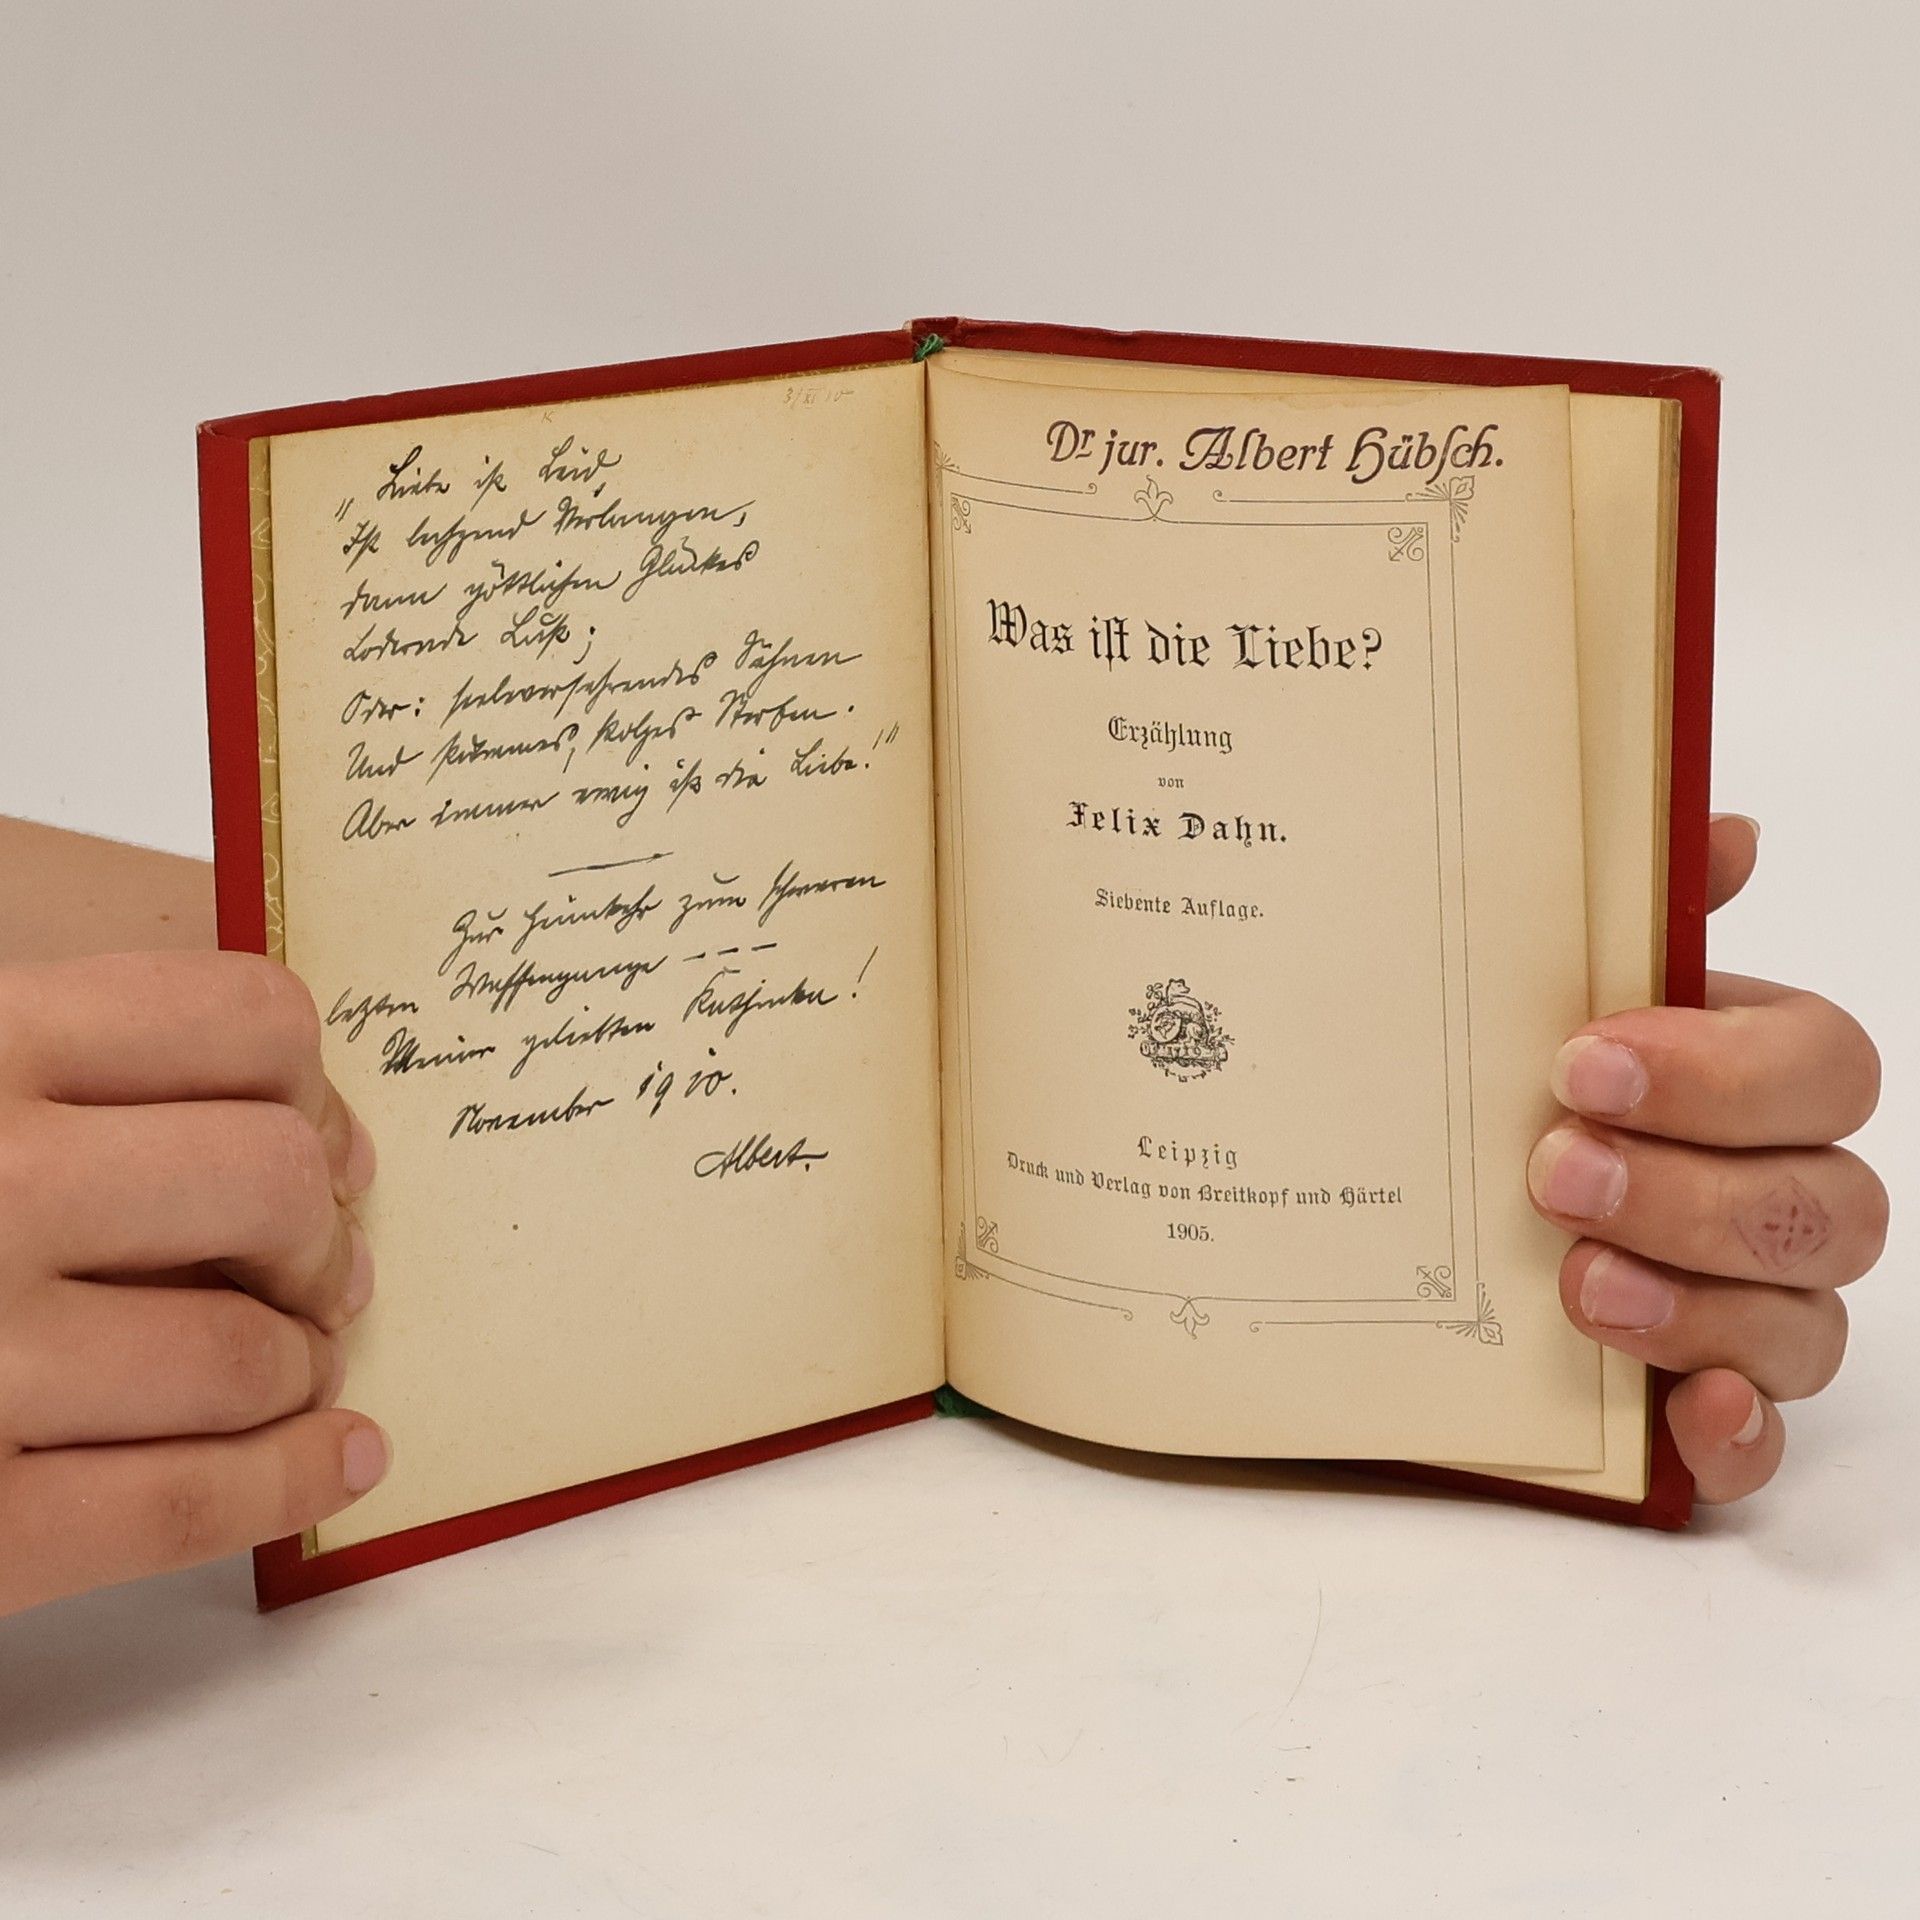 3/XI 10
K
„Liebe ist Leid,
Ist lechzend Verlangen,
dann göttlichen Glückes
Lodernde Lust;
Oder: seelverzehrendes Sehnen
Und stummes, stolzes Sterben.
Aber immer ewig ist die Liebe!"
Zur Heimkehr zum schweren
letzten Waffengange – – –
Meiner geliebten Kathinka!
November 1910.
Albert.
Dr jur. Albert Hübſch.
Was iſt die Liebe?
Erzählung
von
Felix Dahn.
Siebente Auflage.
Leipzig
Druck und Verlag von Breitkopf und Härtel
1905.